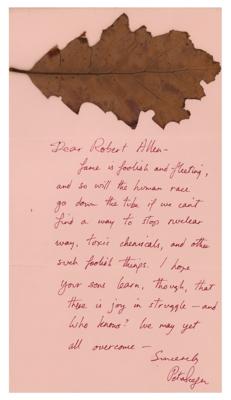 Dear Robert Allen—
Fame is foolish and fleeting,
and so will the human race
go down the tube if we can't
find a way to stop nuclear
way, toxic chemicals, and other
such foolish things. I hope
your sons learn, though, that
there is joy in struggle — and
who knows? We may yet
all overcome —
Sincerely
Pete Seeger